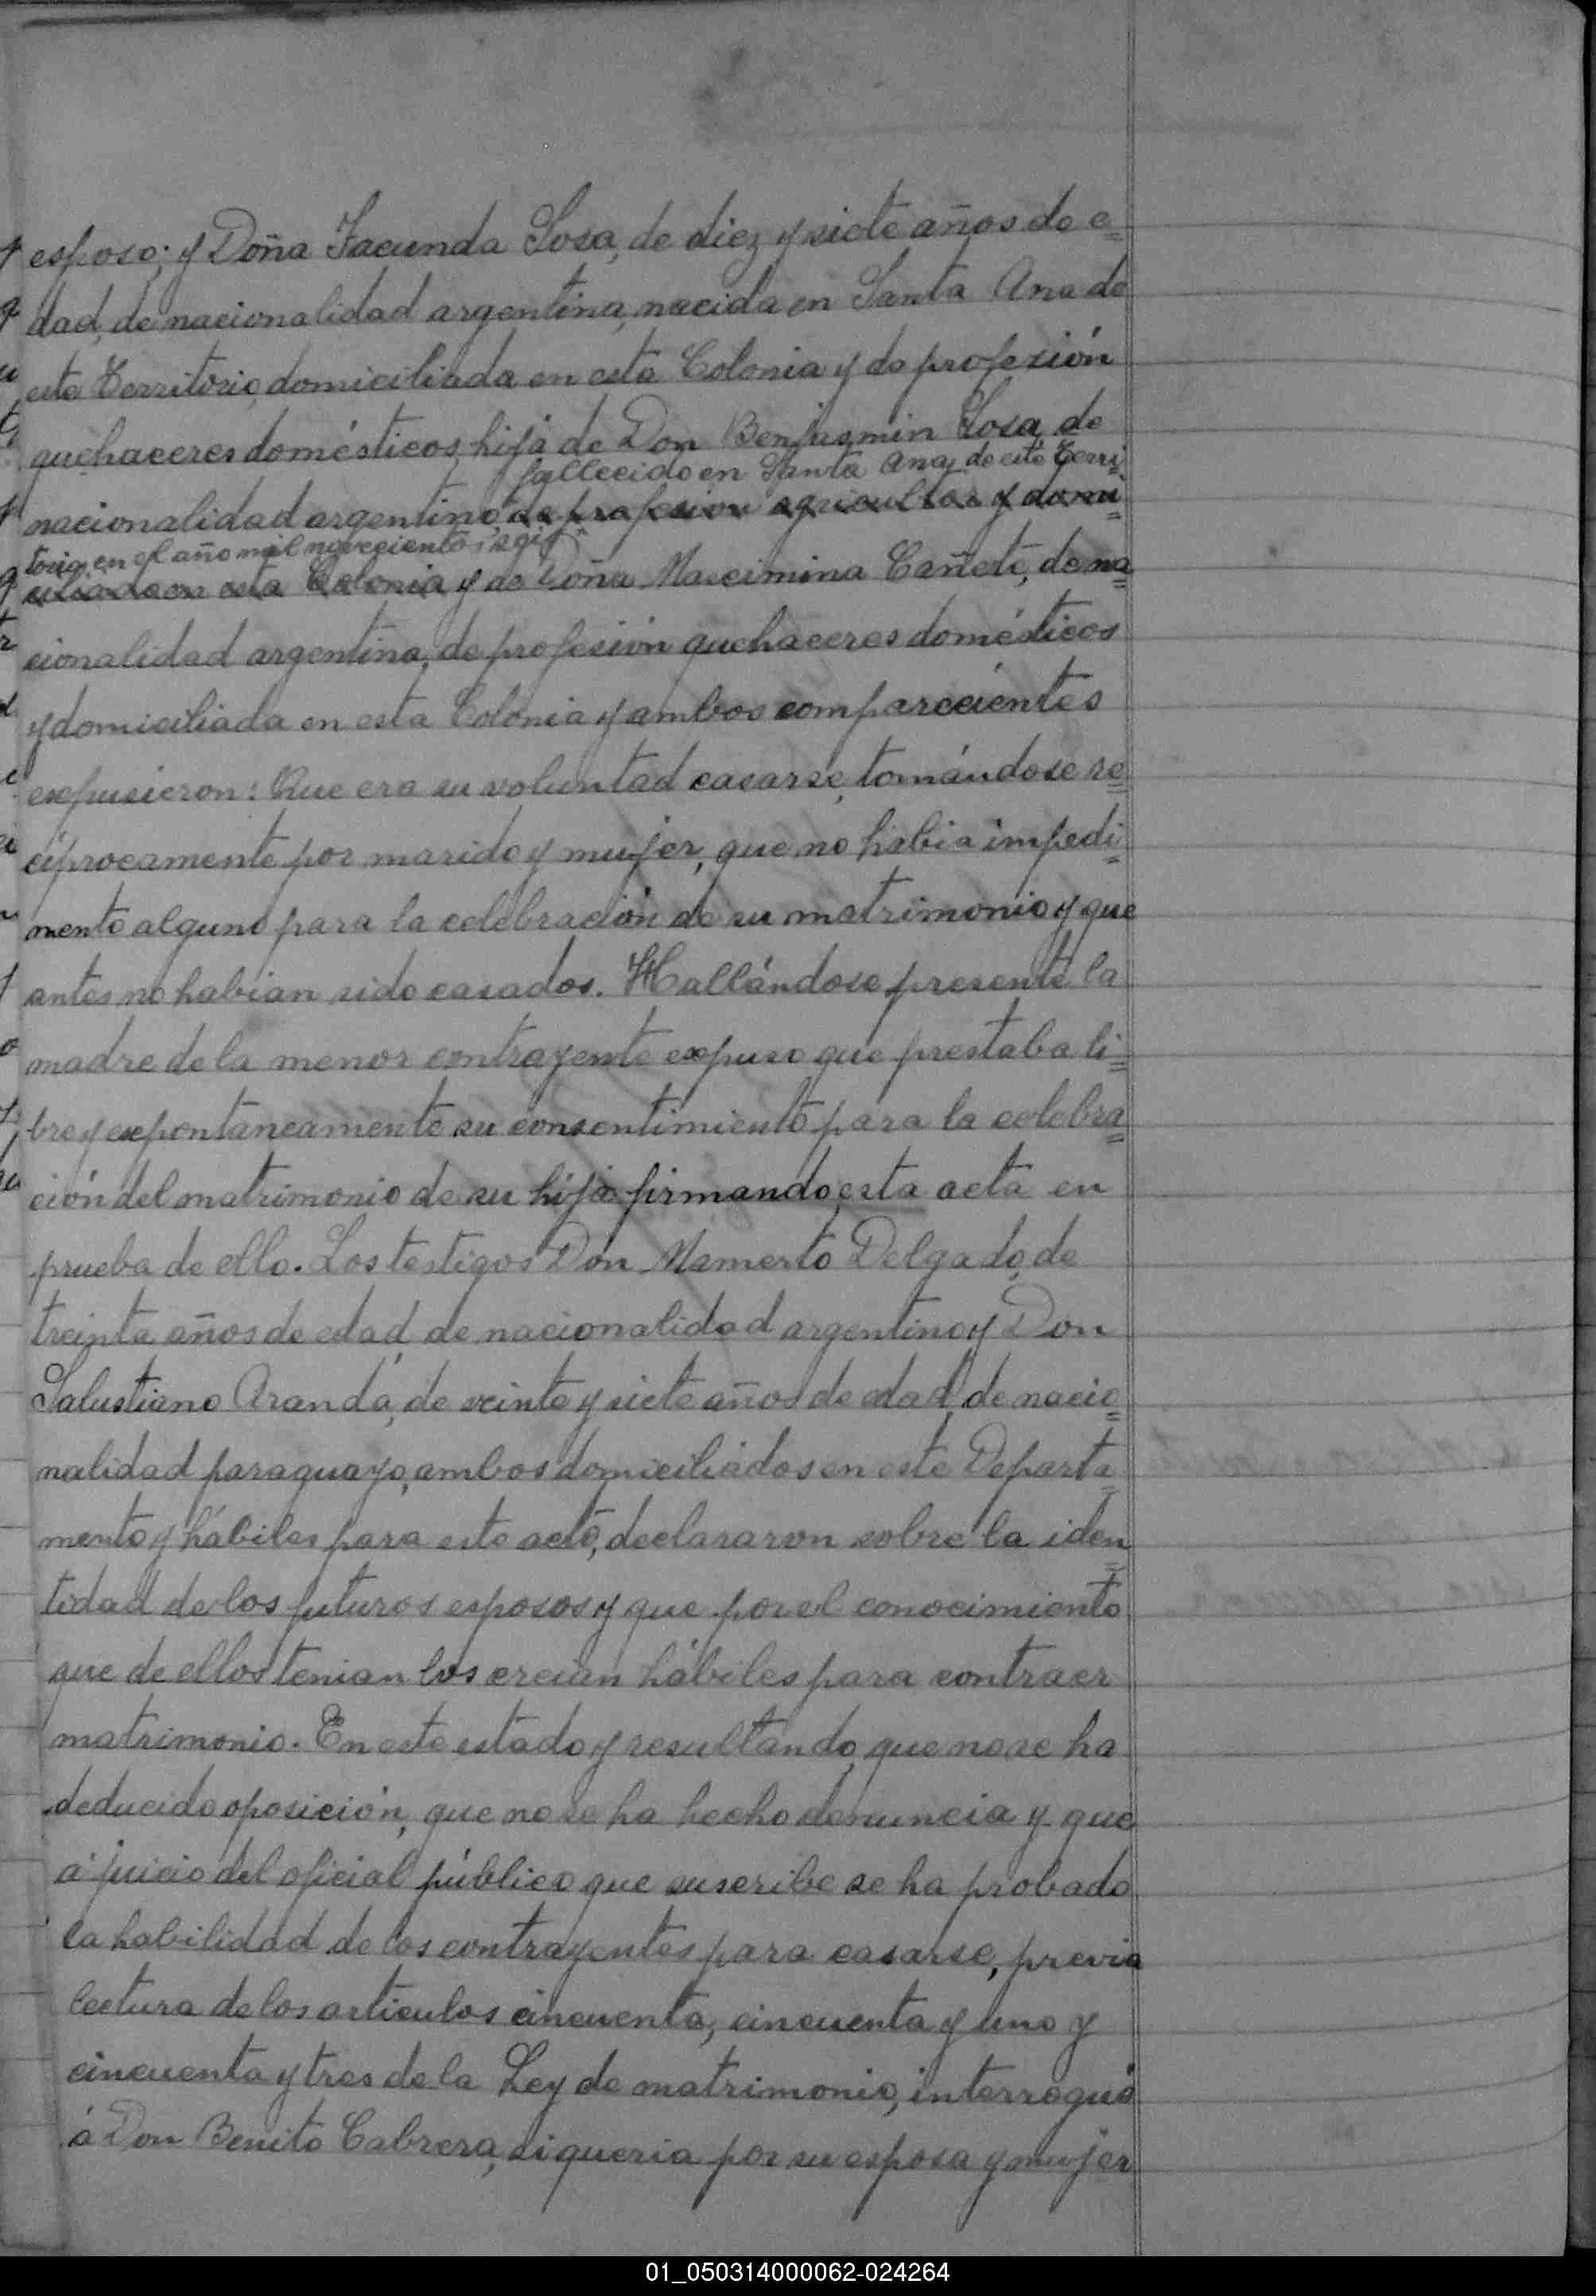 esposo; y Doña Facunda Sosa, de diez y siete años de e=
dad, de nacionalidad argentina, nacida en Santa Ana de
este Territorio, domiciliada en esta Colonia y de profesión
quehaceres domésticos, hija de Don Benjasmin Sosa, de
fallecido en Santa Ana, de este Terri=
nacionalidad argentino, de profesion agricultor y domi=
torio, en el año mil novecientos seis
ciliado en esta Colonia y de Doña Maccimina Cañete, de na=
cionalidad argentina, de profesión quehaceres domésticos
y domiciliada en esta Colonia y ambos comparecientes
expusieron: Que era su voluntad casarse, tomándose re=
cíprocamente por marido y mujer, que no habia impedi=
mento alguno para la celebración de su matrimonio y que
antes no habian sido casados. Hallándose presente la
madre de la menor contrayente expuso que prestaba li=
bre y expontaneamente su consentimiento para la celebra=
ción del matrimonio de su hija firmando esta acta en
prueba de ello. Los testigos Don Mamerto Delgado, de
treinta años de edad, de nacionalidad argentino y Don
Salustiano Aranda, de veinte y siete años de edad, de nacio=
nalidad paraguayo, ambos domiciliados en este Departa=
mento y hábiles para este acto, declararon sobre la iden=
tidad de los futuros esposos y que por el conocimiento
que de ellos tenian los creian hábiles para contraer
matrimonio. En este estado y resultando, que no se ha
deducido oposición, que no se ha hecho denuncia y que
á juicio del oficial público que suscribe se ha probado
la habilidad de los contrayentes para casarse, previa
lectura de los articulos cincuenta, cincuenta y uno y
cincuenta y tres de la Ley de matrimonio, interrogué
á Don Benito Cabrera, si queria por su esposa y mujer
01_050314000062-024264